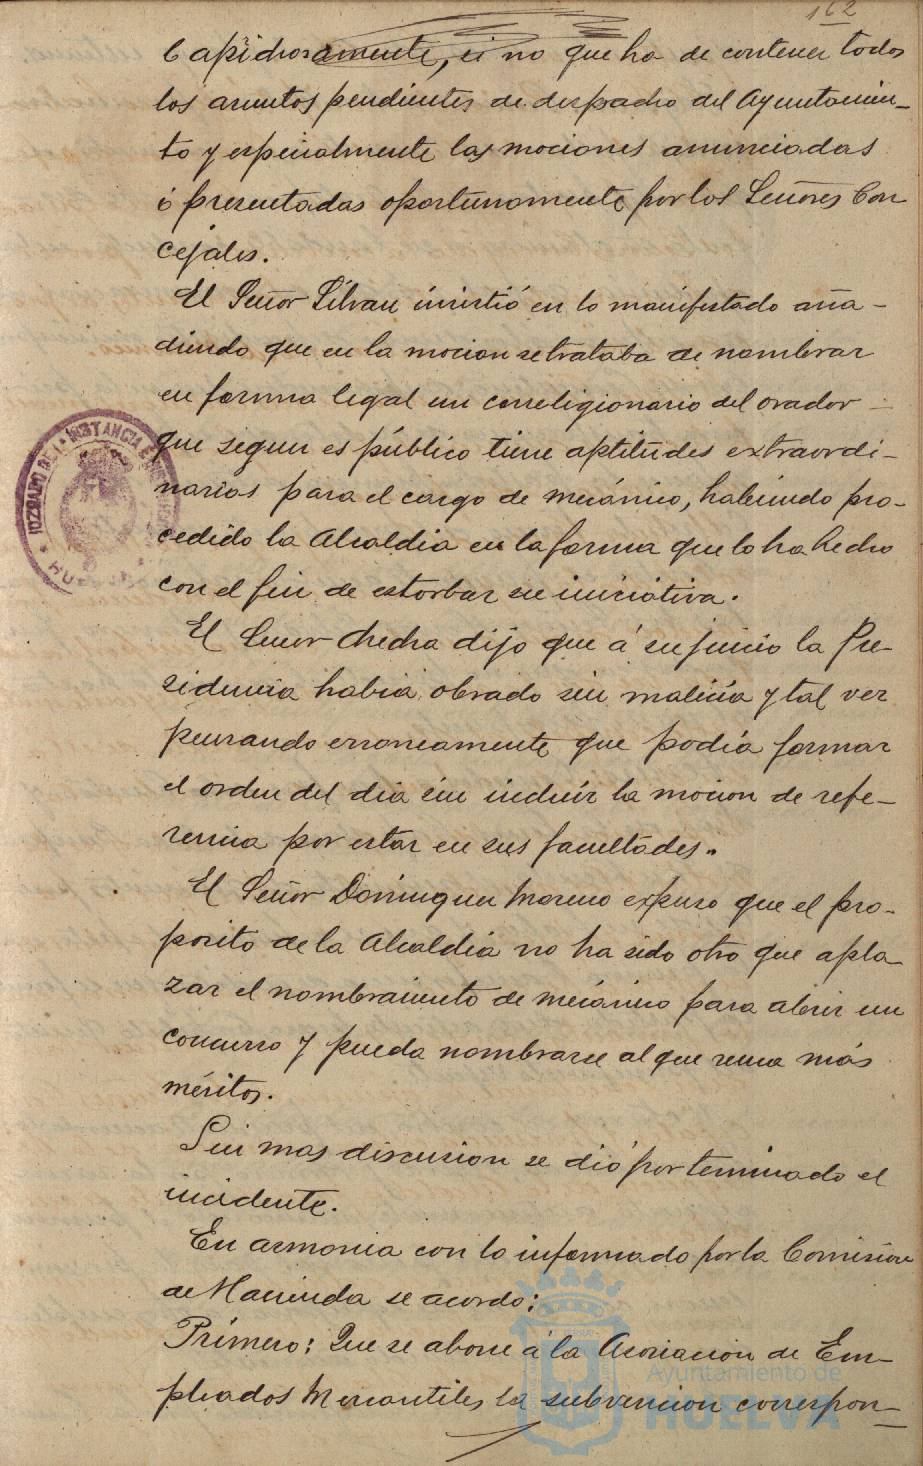 162
Capichosamente, si no que ha de contener todos
los asuntos pendientes de despacho del Ayuntamien-
to y especialmente las mociones anunciadas
ó presentadas oportunamente por los Señores Con
cejales.
El Señor Silvan insistió en lo manifestado aña-
diendo que en la mocion se trataba de nombrar
en forma legal un correligionario del orador
que segun es público tiene aptitudes extraordi-
narias para el cargo de mecánico, habiendo pro-
cedido la Alcaldia en la forma que lo ha hecho
con el fin de estorbar su iniciativa.
El Señor Checha dijo que á su juicio la Pre-
sidencia habia obrado sin malicia y tal vez
pensando erroneamente que podía formar
el orden del dia sin incluir la mocion de refe-
rencia por estar en sus facultades.
El Señor Dominguez Moreno expuso que el pro-
posito de la Alcaldía no ha sido otro que apla
zar el nombramiento de mecánico para abrir un
concurso y pueda nombrarse al que reuna más
méritos.
Sin mas discusion se dió por terminado el
incidente.
En armonia con lo informado por la Comision
de Hacienda se acordó:
Primero: Que se abone á la Asociacion de Em-
pleados Mercantiles la subvencion correspon-
JUZGADO DE 1ª INSTANCIA E
HUELVA
Ayuntamiento de
HUELVA